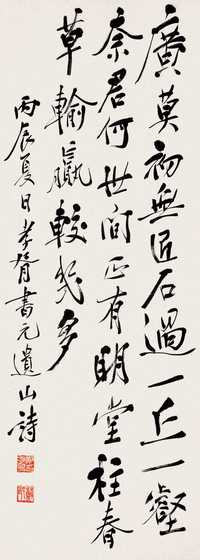 廣莫初無匠石過一丘一壑
柰君何世間正有明堂柱春
草輸贏較幾多
丙辰夏日孝胥書元遺山詩